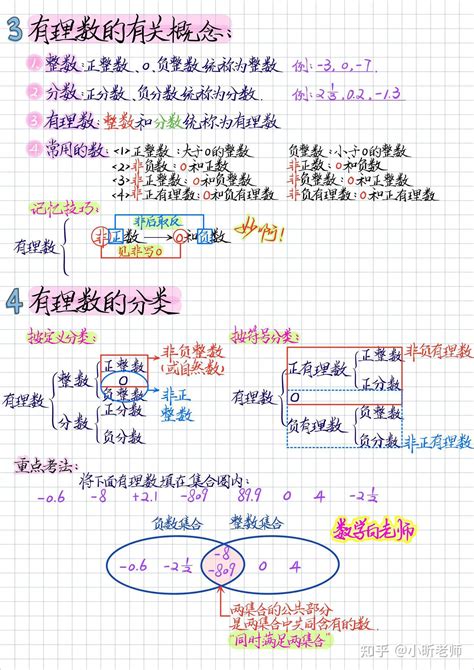 3 有理数的有关概念:
① 整数:正整数、0、负整数统称为整数 例:-3, 0, -7.
② 分数:正分数、负分数统称为分数. 例:2½, 0.2, -1.3
③ 有理数:整数和分数统称为有理数
④ 常用的数:<1>正整数:大于0的整数 负整数:小于0的整数
<2>非负数:0和正数 非正数:0和负数
<3>非正整数:0和负整数 非负整数:0和正整数
<4>非负有理数:0和正有理数 非正有理数:0和负有理数
记忆技巧:
非后取反
有理数 非正数 → 0和负数 妙啊!
见非写0
4 有理数的分类
按定义分类: 按符号分类:
有理数 整数 正整数 0 负整数
分数 正分数 负分数
非负整数
(或自然数)
非正
整数
有理数 正有理数 正整数 正分数
0
负有理数 负整数 负分数
非负有理数
非正有理数
重点考法:
将下面有理数填在集合圈内:
-0.6 -8 +2.1 -809 89.9 0 4 -2½
负数集合 整数集合
数学向老师
-0.6 -2½ -8 -809 0 4
两集合的公共部分
是两集合中共同含有的数.
"同时满足两集合"
知乎 @小昕老师